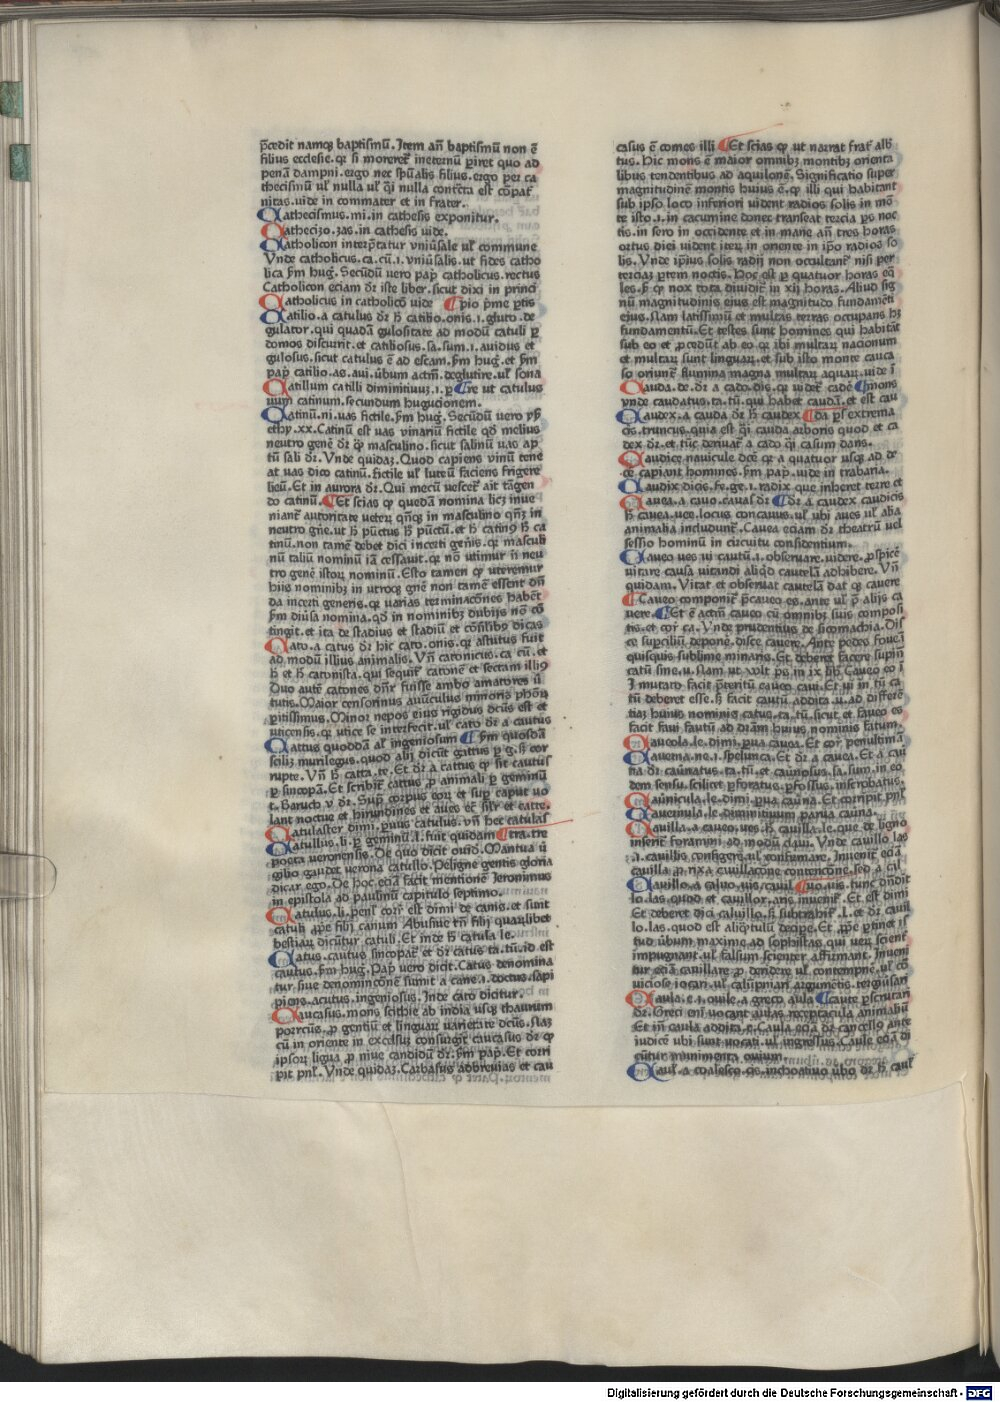 p̄cedit namqꝫ baptismū. Item an̄ baptismū non ē
filius ecclesie. qꝛ si moreret᷑ ineternū ꝑiret quo ad
penā dampni. ergo nec sp̄ualis filius. ergo per ca
thecismū ul' nulla ul' q̄i nulla cont̄cta est cōpat᷑
nitas. uide in commater et in frater.
Cathecismus. mi. in cathesis exponitur.
Cathecizo. zas. in cathesis uide.
Catholicon interp̄tatur vniūsale ul' commune
Vnde catholicus. ca. cū. i. vniūsalis. ut fides catho
lica ẜm hug. Secūdū uero pap̄ catholicus. rectus
Catholicon eciam dꝛ iste liber. sicut dixi in princi
Catholicus in catholicō uide ¶pio p̄me ꝑtis
Catilio. a catulus dꝛ h̄ catilio. onis. i. gluto. de
gulator. qui quadā gulositate ad modū catuli ꝑ
domos discurit. et catiliosus. sa. sum. i. auidus et
gulosus. sicut catulus ē ad escam. ẜm hug. et ẜm
pap̄ catilio. as. aui. ūbum actiū. deglutire. ul' sona
Catillum catilli diminitiuuꝫ. i. ꝑ ¶re ut catulus
uum catinum. secundum hugucionem.
Catinū. ni. uas fictile. ẜm hug. Secūdū uero yp̄
ethy. xx. Catinū est uas vinariū fictile qd̄ melius
neutro gene dꝛ qꝫ masculino. sicut salinū uas ap
tū sali dꝛ. Vnde quidaꝫ. Quod capiens vinū tene
at uas dico catinū. fictile ul' luteū faciens frigere
lieū. Et in aurora dꝛ. Qui mecū uescet᷑ ait tāgen
do catinū. ¶Et scias ꝙ quedā nomina licꝫ inue
niant᷑ autoritate ueteꝝ qn̄qꝫ in masculino qn̄qꝫ in
neutro gn̄e. ut h̄ pūctus h̄ pūctū. et h̄ catinꝰ h̄ ca
tinū. non tamē debet dici incerti gen̄is. qꝛ masculi
nū taliū nominū iā cessauit. qꝛ nō utimur n̄ neu
tro genē istoꝝ nominū. Esto tamen ꝙ uteremur
hiis nominibꝫ in utroqꝫ gn̄e non tamē essent dn̄
da incerti generis. qꝛ varias terminacōnes habēt
ẜm diūsa nomina. qd̄ in nominibꝫ dubijs nō cō
tingit. et ita de stadius et stadiū et cōsilibꝰ dicas
Cato. a catus dꝛ hic cato. onis. qꝛ astutus fuit
ad modū illius animalis. Vn̄ catonicus. ca. cū. et
h̄ et h̄ catonista. qui sequit᷑ catonē et sectam illiꝰ
Duo autē catones dn̄r fuisse ambo amatores ū
tutis. Maior censorinus auūculus minoris phōꝝ
ꝑitissimus. Minor nepos eius rigidus dc̄us est et
uticensis. qꝛ utice se interfecit. ul' cato dꝛ a cautus
Cattus quoddā al' ingeniosum ¶ẜm quosdā
sciliꝫ murilegus. quod alij dicūt gattus ꝑ g. ꝫ cor
rupte. Vn̄ h̄ catta. te. Et dꝛ a cattus ꝙ sit cautus
ꝑ sincopā. Et scribit᷑ cattus ꝓ animali ꝑ geminū
t. Baruch v dꝛ. Suꝑ corpus eoꝝ et suꝑ caput uo
lant noctue et hirundines et aues ec̄ sil'r et catte.
Catulaster dimi. paruus catulus. vn̄ hec catulas
Catullus. li. ꝑ geminū. l. fuit quidam ¶tra. tre
poeta ueronensis. De quo dicit ouid. Mantua ū
gilio gaudet uerona catullo. Peligne gentis gloria
dicar ego. De hoc eciā facit mentionē Ieronimus
in epistola ad paulinū capitulo septimo.
Catulus. li. penl' corr̄ est dimi de canis. et sunt
catuli ꝓpe filij canum Abusiue tn̄ filij quaꝝlibet
bestiaꝝ dicūtur catuli. Et inde h̄ catula le.
Catus. cautus sincopat᷑ et dꝛ catus ta. tū. id est
cautus. ẜm hug. Pap̄ uero dicit. Catus denomina
tur. siue denominatōnem sumit a cane. i. doctus. sapi
piens. acutus. ingeniosus. Inde cato dicitur.
Caucasus. mons scithie ab india usqꝫ thaurum
porrectus. ꝓ gentiū et linguaꝝ varietate dc̄us. Naꝫ
cū in oriente in excelsuꝫ consurgit caucasus dꝛ ꝙ
ipsoꝝ ligua ꝓ niue candidū dꝛ. ẜm pap̄. Et corri
pit pnl'. Vnde quidaꝫ. Carbasus abbreuias et cau
casus ē comes illi ¶Et scias ꝙ ut narrat frat᷑ alb̄
tus. Hic mons ē maior omnibꝫ montibꝫ orienta
libus tendentibus ad aquilonē. Significatio super
magnitudinē montis huius ē. qꝛ illi qui habitant
sub ipso loco inferiori uident radios solis in mō
te isto. i. in cacumine donec transeat tercia ꝑs noc
tis. in sero in occidente et in mane an̄ tres horas
ortus diei uident iteꝝ in oriente in ip̄o radios so
lis. Vnde ip̄ius solis radij non occultant᷑ nisi per
terciaꝫ ꝑtem noctis. Hoc est ꝑ quatuor horas eq̄
les. ꝓ qꝛ nox tota diuidit᷑ in xij horas. Aliud sig
nū magnitudinis eius est magnitudo fundamēti
eius. Nam latissimū et multas terras occupans hꝫ
fundamentū. Et testes sunt homines qui habitāt
sub eo et ꝓcedūt ab eo qꝛ ibi multaꝝ nacionum
et multaꝝ sunt linguaꝝ. et sub isto monte cauca
so oriunt᷑ flumina magna multaꝝ aquaꝝ. uide ī
Cauda. de. dꝛ a cado. dis. qꝛ uidet᷑ cadē ¶mons
vnde caudatus. ta. tū. qui habet caudā. et est cau
Caudex. a cauda dꝛ h̄ caudex ¶da ꝑs extrema
cis. truncus. quia est q̄i cauda arboris quod et ca
dex dꝛ. et tūc deriuat᷑ a cado q̄i casum dans.
Caudice nauicule dic̄e qꝛ a quatuor usqꝫ ad de
ce capiant homines. ẜm pap̄. uide in trabaria.
Caudix dicis. fe. ge. i. radix que inheret terre et
Cauea. a cauo. cauas dꝛ ¶dꝛ a caudex caudicis
h̄ cauea. uee. locus concauus. ul' ubi aues ul' alia
animalia includunt᷑. Cauea eciam dꝛ theatrū uel
sessio hominū in circuitu considentium.
Caueo ues ui cautū. i. obseruare. uidere. ꝓspicē
uitare causa uitandi aliqd̄ cautelā adhibere. Vn̄
quidam. Vitat et obseruat cautelā dat qꝛ cauere
¶Caueo componit᷑ p̄caueo es. ante ul' p̄ alijs ca
uere. ¶Et ē actiū caueo cū omnibꝫ suis composi
tis. et cor̄ ca. Vnde prudentius de sicomachia. Dis
ce suꝑciliū depone. disce cauere. Ante pedes foueā
quisquis sublime minaris. Et deberet facere supin̄
catū sine. u. Nam ut uolt p̄s in ix lib. Caueo eo ī
i mutato facit p̄teritū caueo caui. Et ui in tū ca
tū deberet esse. ꝫ facit cautū addita. u. ad differē
tiaꝫ huius nominis catus. ta. tū. sicut et faueo es
facit faui fautū ad dr̄am huius nominis fatum.
Caueola. le. dimi. ꝑua cauea. Et cor̄ penultimā
Cauerna. ne. i. spelunca. Et dꝛ a cauea. Et a caū
na dꝛ caūnatus. ta. tū. et caūnosus. sa. sum. in eo
dem sensu. scilicet ꝑforatus. ꝑfossus. inscrobatus.
Caūnicula. le. dimi. ꝑua caūna. Et corripit pnl'.
Cauernula. le. diminitiuum parua cauna.
Cauilla. a caueo. ues. h̄ cauilla. le. que de ligno
inserit᷑ foramini ad modū claui. Vnde cauillo las
.i. cauillis configere. ul' confirmare. Inuenit᷑ eciā
cauilla ꝓ rixa cauillacōne contencōne. sed a cal
Cauillo. a caluo. uis. cauil ¶uo. uis. tunc dn̄dit
lo. las. quod et cauillor. aris inuenit᷑. Et est dimi
Et deberet dici caluillo. ꝫ subtrahit᷑. l. et dꝛ cauil
lo. las. quod est aliqn̄tulū decipe. Et ꝓpē ꝑtinet is
tud ūbum maxime ad sophistas qui ueꝝ scient᷑
impugnant ul' falsum scienter affirmant. Inueni
tur eciā cauillare. ꝓ dendere ul' contempne. ul' cō
uiciose iocari. ul' calūpniari argumētis. tergiūsari
Caula. e. i. ouile. a greco aula ¶caute ꝑscrutari
dꝛ. Greci em̄ uocant aulas receptacula animaliū
Et in̄ caula addita. c. Caula eciā dꝛ cancellꝰ ante
iudicē ubi sunt uocati. ul' ingressus. Caule eciā di
cūtur munimenta ouium.
Caul'. a coalesco. cis. inchoatiuo ūbo dꝛ h̄ caul'
Digitalisierung gefördert durch die Deutsche Forschungsgemeinschaft - DFG